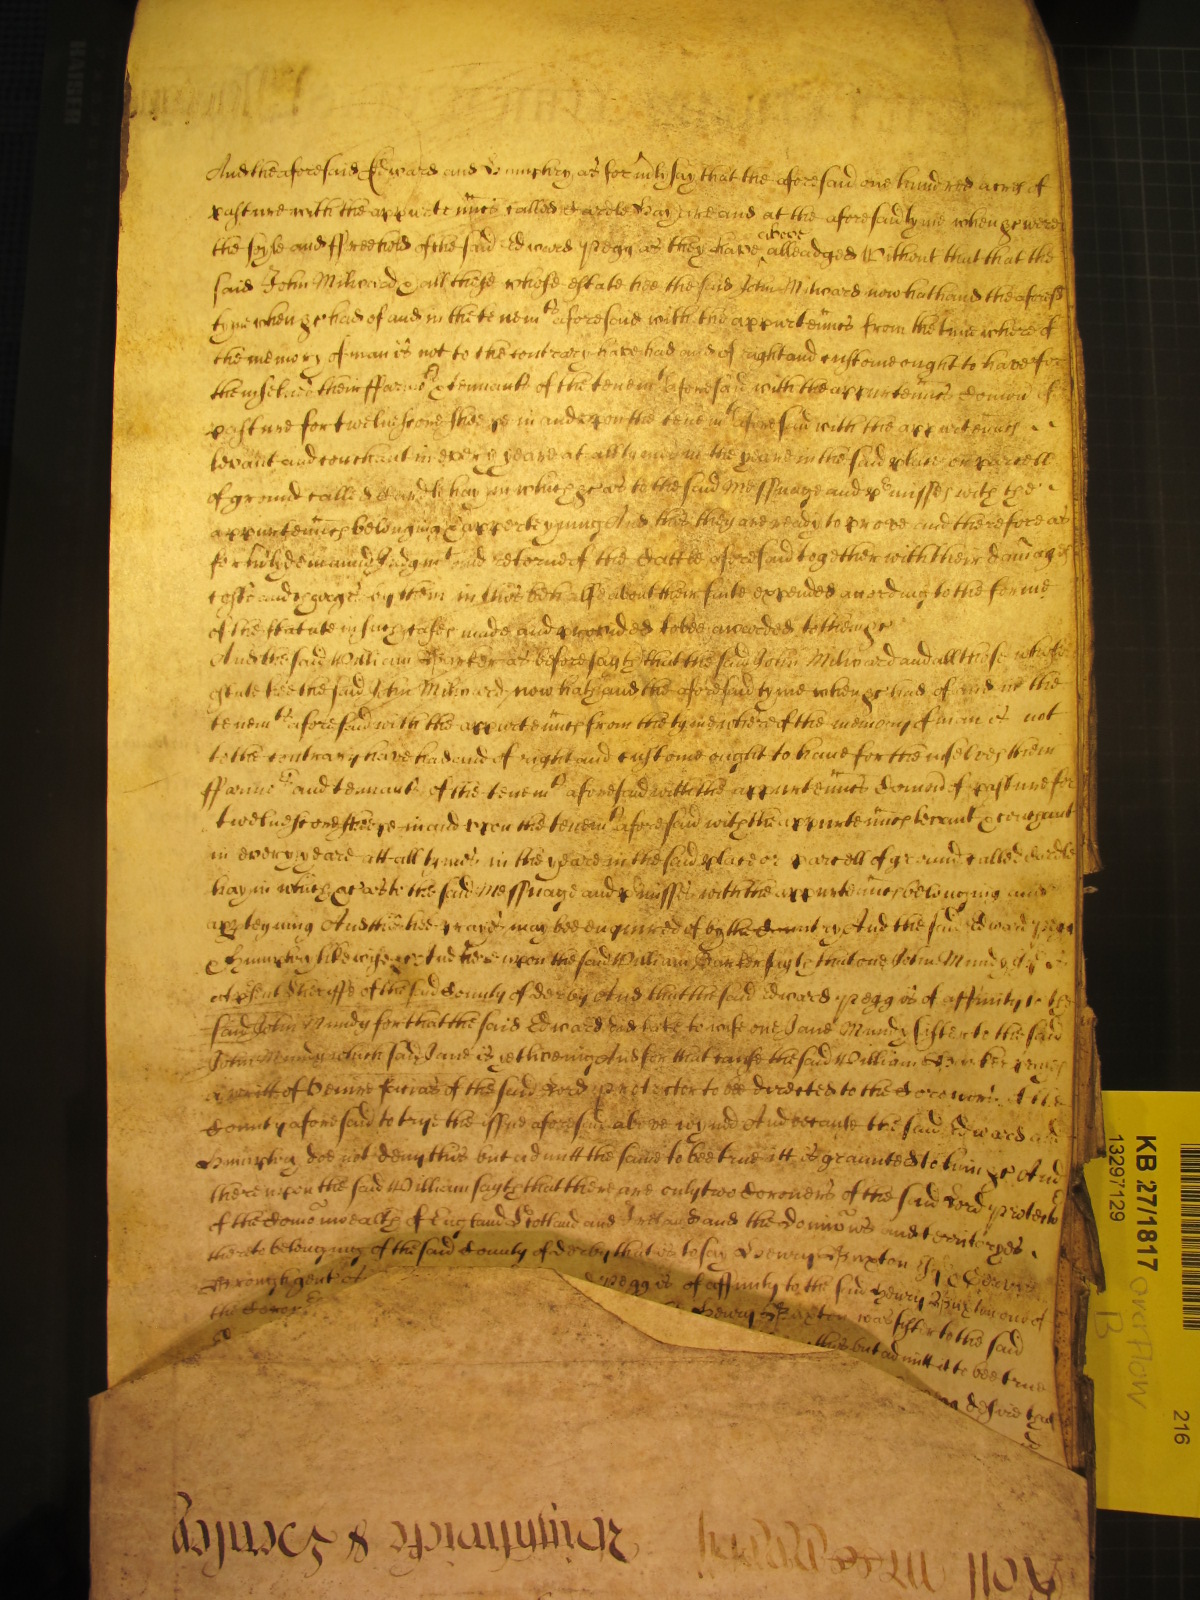 And the aforesaid Edward and Humphry as formly say that the aforesaid one hundred acres of
pasture with the appurtennces called Cardle Hay are and at the aforesaid tyme when &c were
the soyle and ffreehold of the said Edward Pegg as they have above alleadged Without that that the
said John Milward & all those whose estate hee the said John Milward now hath and the aforesd
tyme when &c had of and in the tenemts aforesaid with the appurtennces from the tyme where of
the memory of man is not to the contrary have had and of right and custome ought to have for
themselves their ffarmors & tennants of the tenemts aforesaid with the appurtennces Comon of
pasture for twelve score sheepe in and upon the tenemts aforesaid with the appurtennces
levant and couchant in every yeare at all tymes in the yeare in the said place or parcell
of ground called Cardle hay in which &c as to the said Messuage and pmisses with the
appurtennces belonging & apperteyning And this they are ready to prove and therefore as
formly demaund Judgmt and retorne of the Cattle aforesaid together with their damages
costs and charges by them in this behalfe about their suite expended according to the forme
of the statute in such case made and provided to bee awarded to them &c
And the said William Barker as before sayth that the said John Milward and all those whose
estate hee the said John Milward now hath and the aforesaid tyme when &c had of and in the
tenemts aforesaid with the appurtennces from the tyme where of the memory of man is not
to the contrary have had and of right and custome ought to have for themselves their
ffarmors and tennants of the tenemts aforesaid with the appurtennces Comon of pasture for
twelve score sheepe in and upon the tenemts aforesaid with the appurtennces levant & couchant
in every yeare att all tymes in the yeare in the said place or parcell of ground called Cardle
hay in which &c as to the said Messuage and pmisses with the appurtennces belonging and
apperteyning And this hee prayes may bee enquired of by the Country And the said Edward Pegg
& Humphry likewise &c And hereupon the said William Barker sayth that one John Mundy Esq
is att psent Sheriffe of the said County of Derby And that the said Edward Pegg is of affinity to the
said John Mundy for that the said Edward did take to wife one Jane Mundy sister to the said
John Mundy which said Jane is yet liveing And for that cause the said William Barker prayes
a writt of Venire facias of the said Lord Protector to be directed to the Coroners of the
County aforesaid to trye the issue aforesaid above ioyned And because the said Edward and
Humphry doe not deny this but admitt the same to bee true itt is graunted to him &c And
thereupon the said William sayth that there are only two Coroners of the said Lord Protector
of the Comonwealth of England Scotland and Ireland and the Dominions and territoryes
thereto belonging of the said County of Derby that is to say Henry Buxton
gent of Pegg is of affinity to the said Henry Buxton one of
the Coroners Henry Buxton was sister to the said
this but admitt it to bee true
desire that
Wightwicke & Henley
Roll
KAISER
KB 27/1817
13297129
overflow
B
216